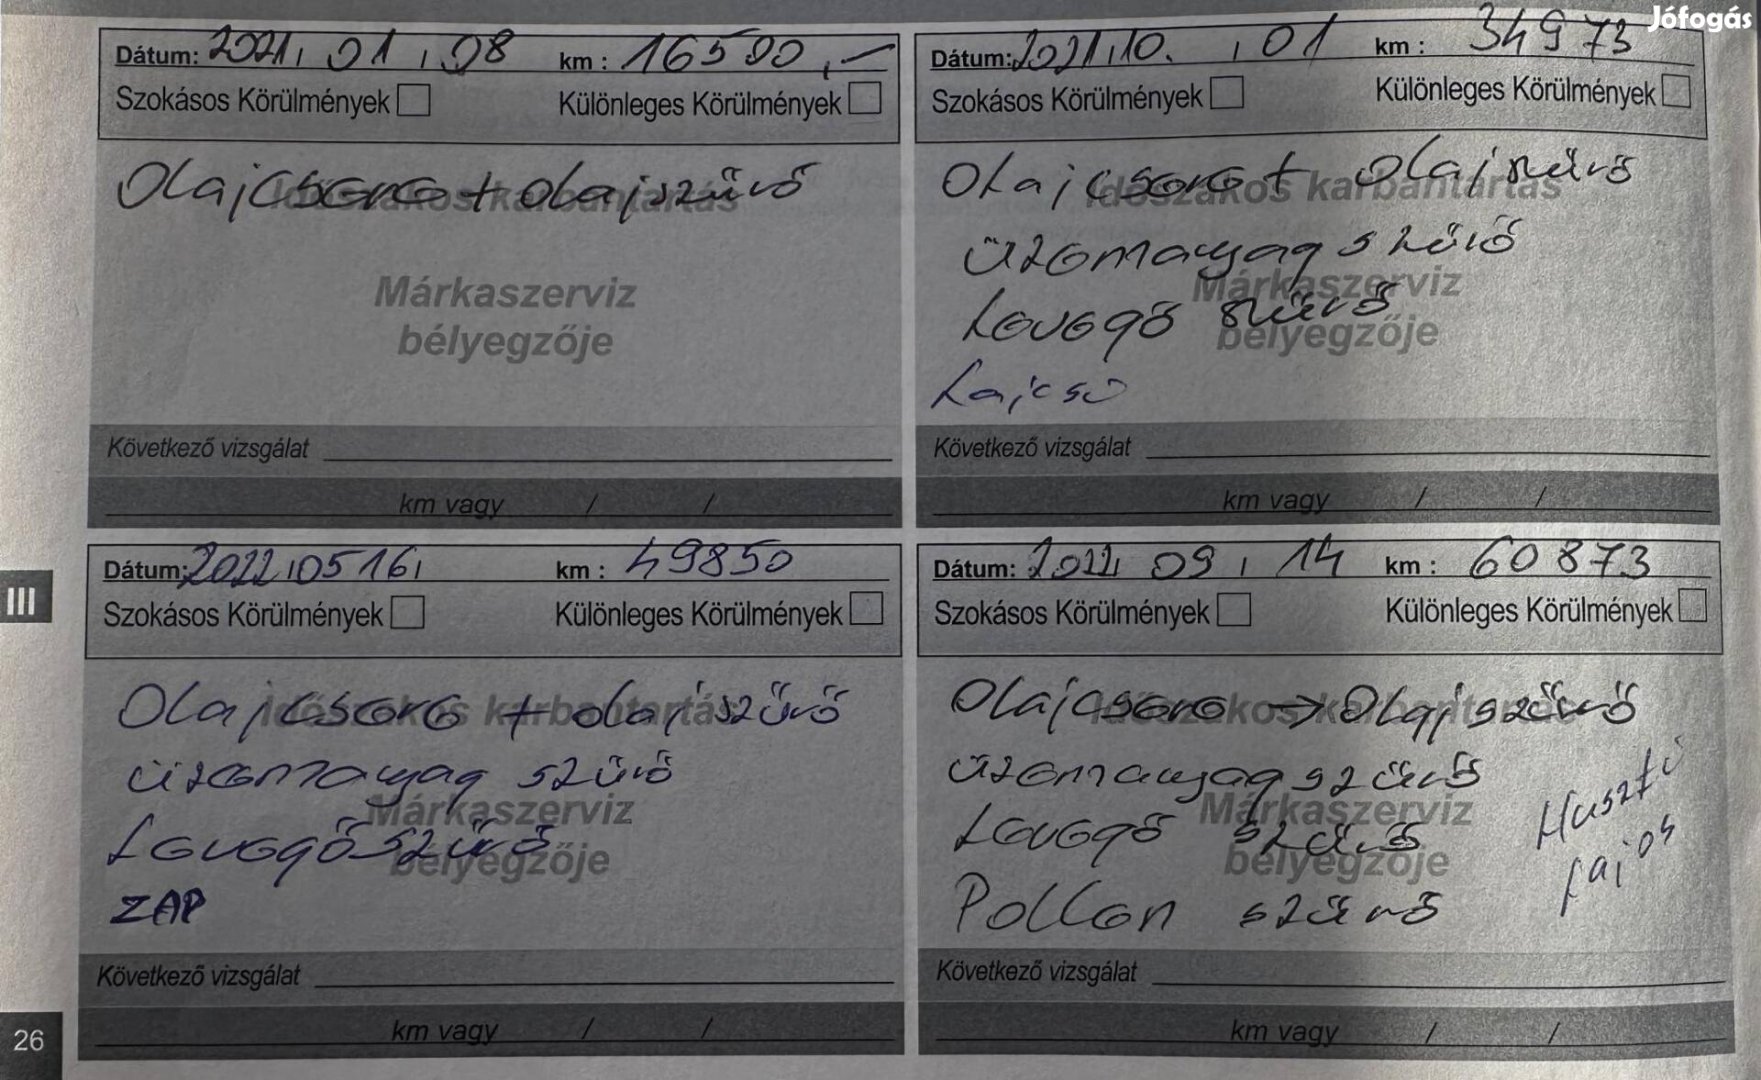 Jófogás
Dátum: 2021, 01, 08 km : 16500,-
Szokásos Körülmények Különleges Körülmények
Olajcsere + olajszűrő
Időszakos karbantartás
Márkaszerviz
bélyegzője
Következő vizsgálat
km vagy / /
Dátum: 2021,10. , 01 km : 34973
Szokásos Körülmények Különleges Körülmények
Olajcsere + olajszűrő
Időszakos karbantartás
üzemanyag szűrő
Márkaszerviz
Levegő szűrő
bélyegzője
Lajcsi
Következő vizsgálat
km vagy / /
Dátum: 2022,05 16, km : 49850
Szokásos Körülmények Különleges Körülmények
Olajcsere + olajszűrő
Időszakos karbantartás
üzemanyag szűrő
Márkaszerviz
Levegőszűrő
bélyegzője
ZAP
Következő vizsgálat
km vagy / /
Dátum: 2022, 09, 14 km : 60873
Szokásos Körülmények Különleges Körülmények
Olajcsere → Olajszűrő
Időszakos karbantartás
üzemanyag szűrő
Márkaszerviz
Levegő szűrő
bélyegzője
Pollen szűrő
Huszti
Lajos
Következő vizsgálat
km vagy / /
III
26